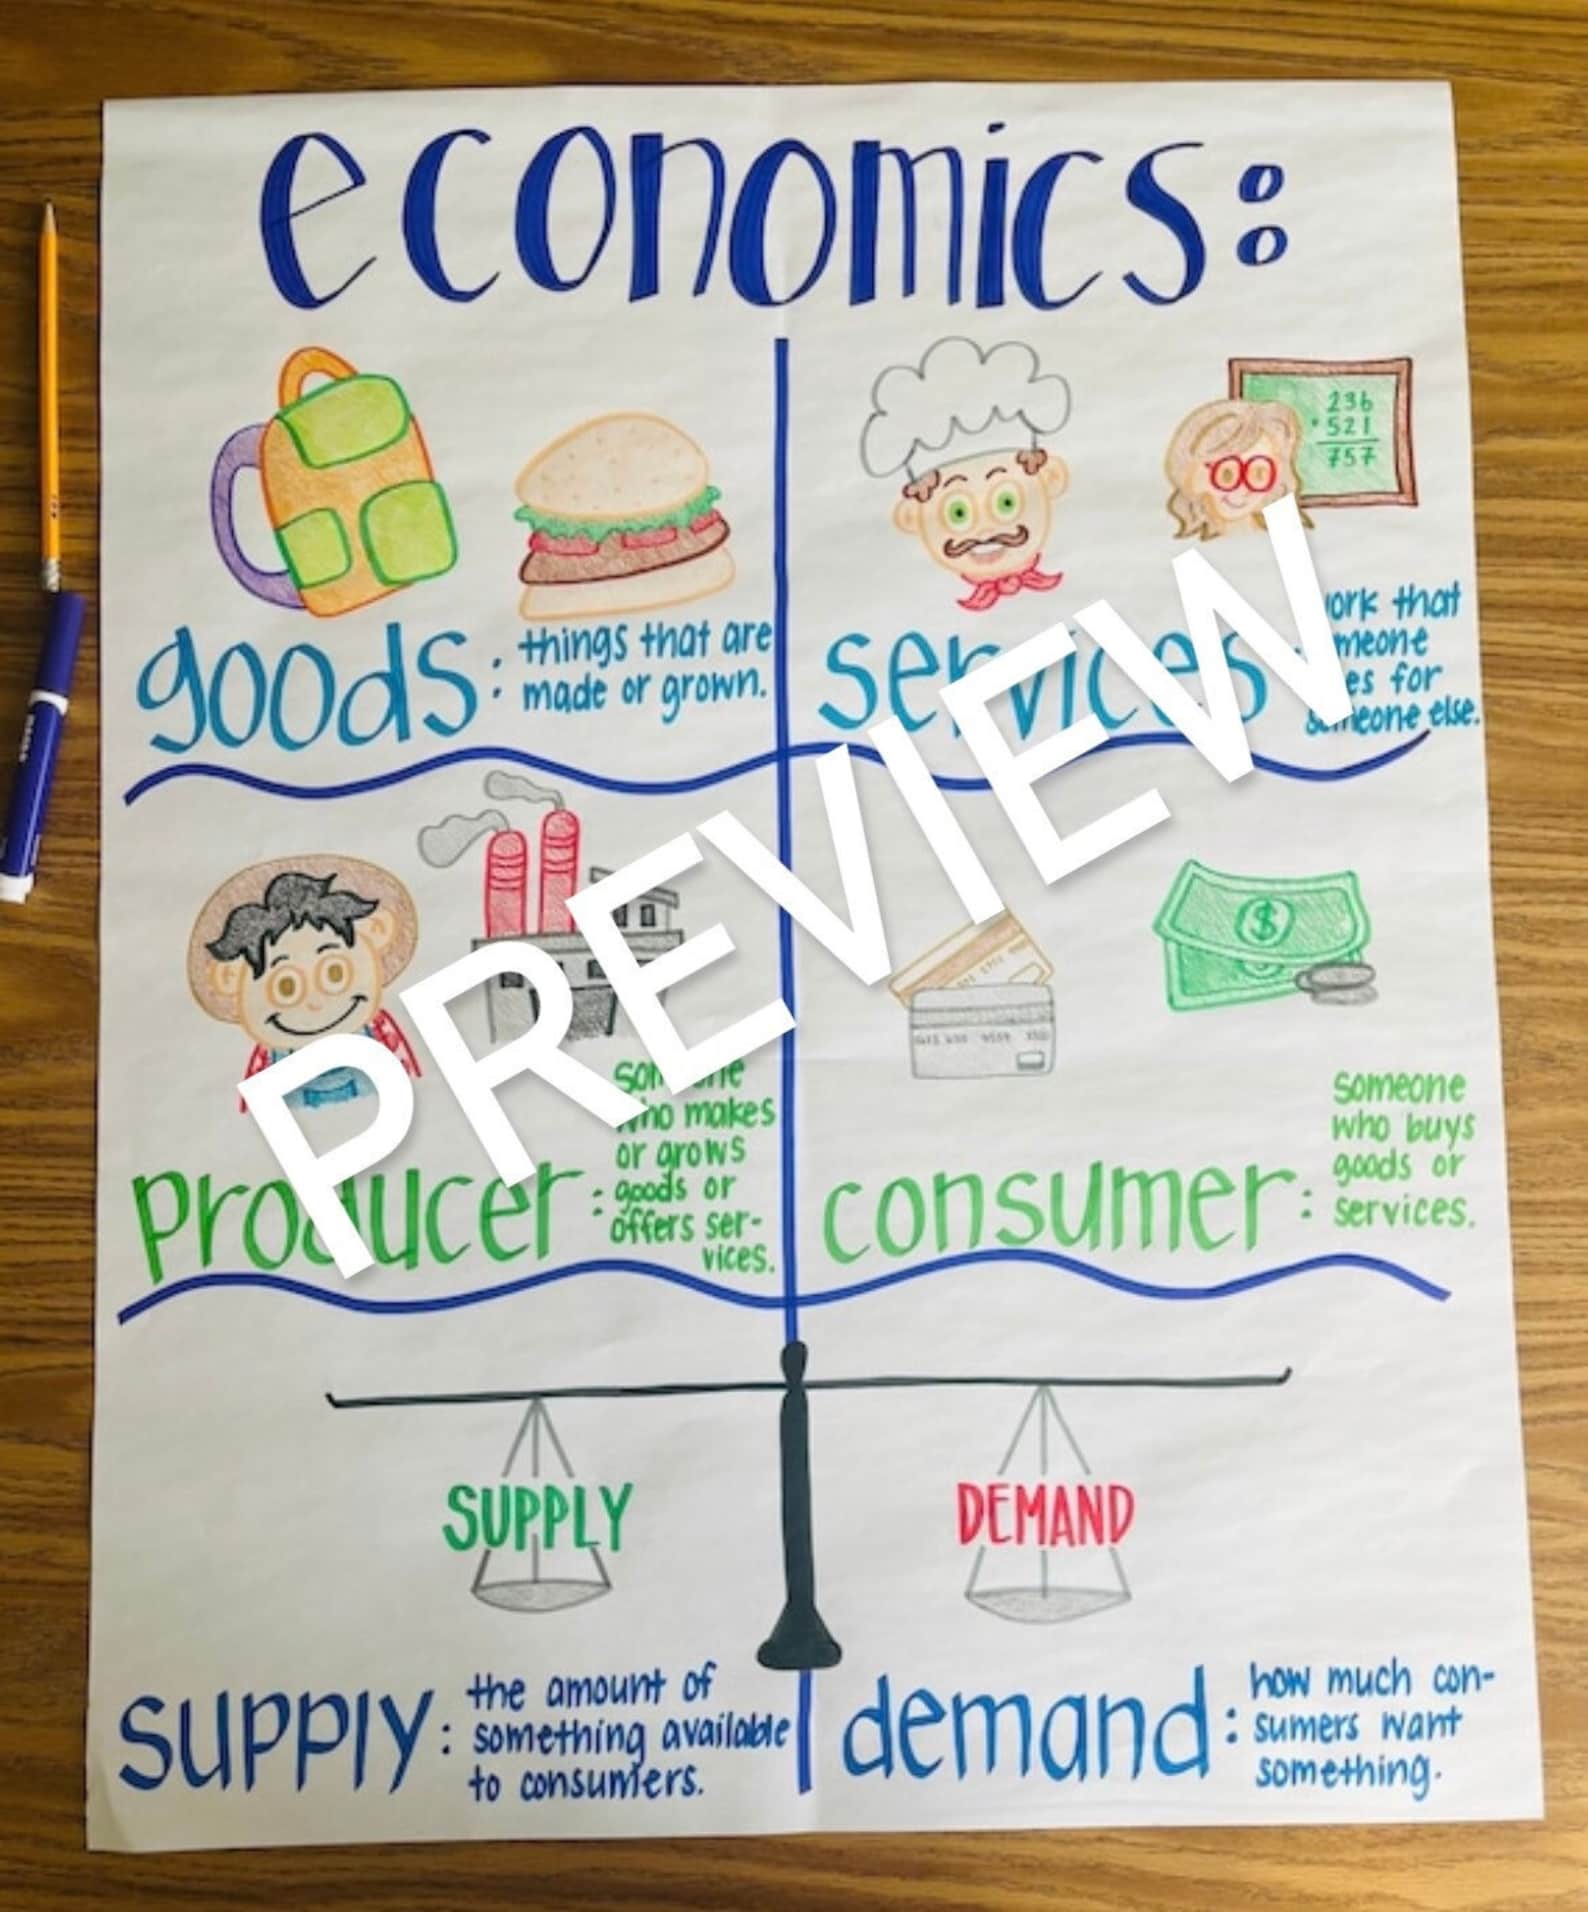 economics:
236
+521
757
goods: things that are
made or grown.
services: work that
someone
does for
someone else.
producer: someone
who makes
or grows
goods or
offers ser-
vices.
consumer: someone
who buys
goods or
services.
SUPPLY
DEMAND
supply: the amount of
something available
to consumers.
demand: how much con-
sumers want
something.
PREVIEW